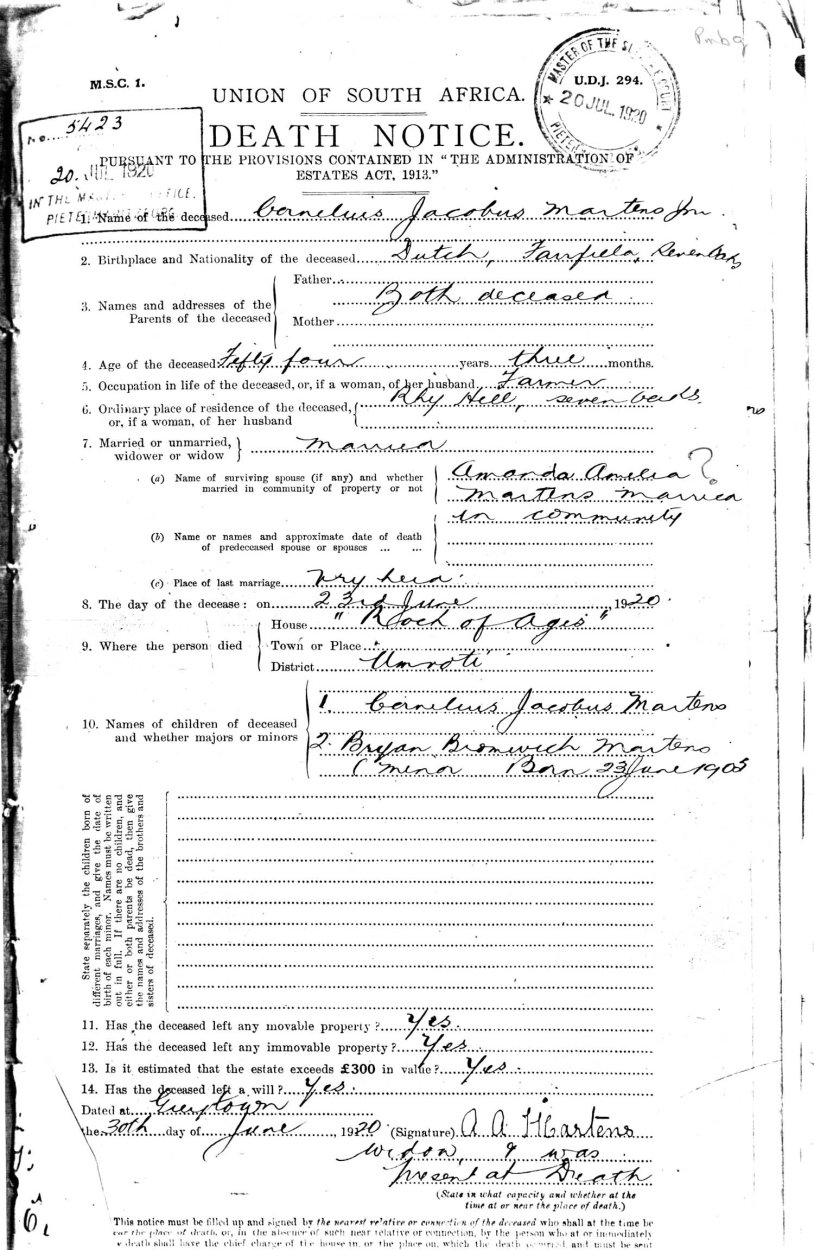 Pmbg
M.S.C. 1.
U.D.J. 294.
MASTER OF THE
20 JUL 1920
UNION OF SOUTH AFRICA.
No. 5423
20. JUL 1920
DEATH NOTICE.
PURSUANT TO THE PROVISIONS CONTAINED IN "THE ADMINISTRATION OF
ESTATES ACT, 1913."
1. Name of the deceased Cornelius Jacobus Martens Jnr.
2. Birthplace and Nationality of the deceased Dutch, Fairfield, Seven Oaks
3. Names and addresses of the
Parents of the deceased
Father
Both deceased
Mother
4. Age of the deceased Fifty four years three months.
5. Occupation in life of the deceased, or, if a woman, of her husband Farmer
6. Ordinary place of residence of the deceased,
or, if a woman, of her husband
Hill, Seven Oaks.
7. Married or unmarried,
widower or widow
Married
(a) Name of surviving spouse (if any) and whether
married in community of property or not
Amanda Amelia ?
Martens Married
in community
(b) Name or names and approximate date of death
of predeceased spouse or spouses ... ...
(c) Place of last marriage Vryheid.
8. The day of the decease: on 23rd June 1920.
9. Where the person died
House "Rock of Ages"
Town or Place
District Umvoti
10. Names of children of deceased
and whether majors or minors
1. Cornelius Jacobus Martens
2. Bryan Bromwich Martens
(minor Born 23 June 1903
State separately the children born of
different marriages, and give the date of
birth of each minor. Names must be written
out in full. If there are no children, and
either or both parents be dead, then give
the names and addresses of the brothers and
sisters of deceased.
11. Has the deceased left any movable property? Yes.
12. Has the deceased left any immovable property? Yes.
13. Is it estimated that the estate exceeds £300 in value? Yes.
14. Has the deceased left a will? Yes.
Dated at Greytown
the 30th day of June, 1920 (Signature) A A Martens
widow, I was
present at Death
(State in what capacity and whether at the
time at or near the place of death.)
This notice must be filled up and signed by the nearest relative or connection of the deceased who shall at the time be
the place of death, or, in the absence of such near relative or connection, by the person who at or immediately
death shall have the chief charge of the house in, or the place on, which the death occurred, and must be sent